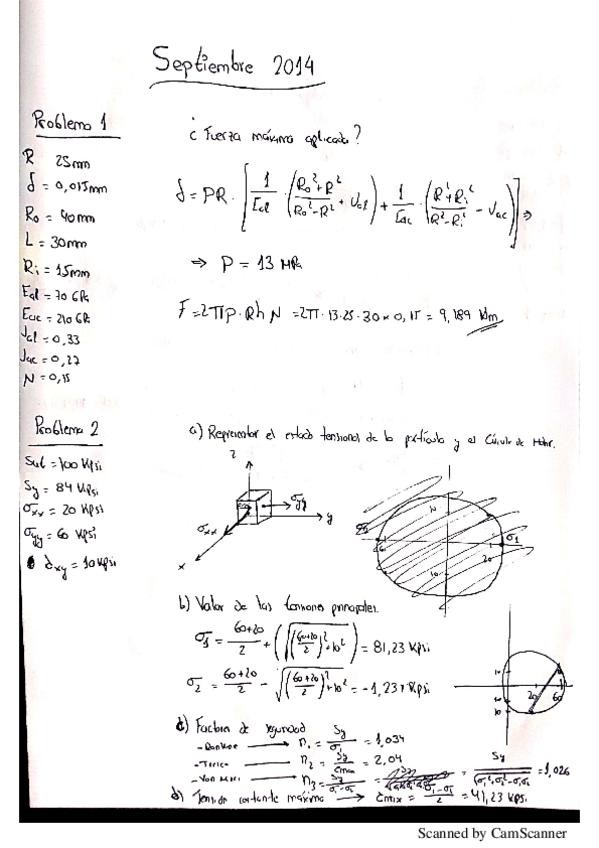 Septiembre 2014
Problema 1
R 25mm
δ = 0,015mm
Ro = 40mm
L = 30mm
Ri = 15mm
Eal = 70 GPa
Eac = 210 GPa
Val = 0,33
Vac = 0,27
N = 0,15
¿ Fuerza máxima aplicada ?
δ = PR · [ 1/Eal · ( (Ro² + R²)/(Ro² - R²) + Val ) + 1/Eac · ( (R² + Ri²)/(R² - Ri²) - Vac ) ] ⇒
⇒ P = 13 MPa
F = 2πp · Rh N = 2π · 13 · 25 · 30 × 0,15 = 9,189
Problema 2
Sut = 100 Kpsi
Sy = 84 Kpsi
σxx = 20 Kpsi
σyy = 60 Kpsi
τxy = 10 Kpsi
a) Representar el estado tensional de la partícula y el Círculo de Mohr.
z
σyy
y
σxx
x
σ1
20
10
b) Valor de las tensiones principales.
σ1 = (60+20)/2 + ( √( ((60+20)/2)² + 10² ) = 81,23 Kpsi
σ2 = (60+20)/2 - √( ((60+20)/2)² + 10² = -1,23 Kpsi
10
20 60
10
c) Factores de seguridad
- Rankine → n1 = Sy/σ1 = 1,034
- Tresca → n2 = Sy/τmax = 2,04
- Von Mises → n3 = Sy/σ1-σ2 = Sy/√(σ1²+σ2²-σ1σ2) = 1,026
d) Tensión cortante máxima → τmax = (σ1-σ2)/2 = 41,23 Kpsi
Scanned by CamScanner